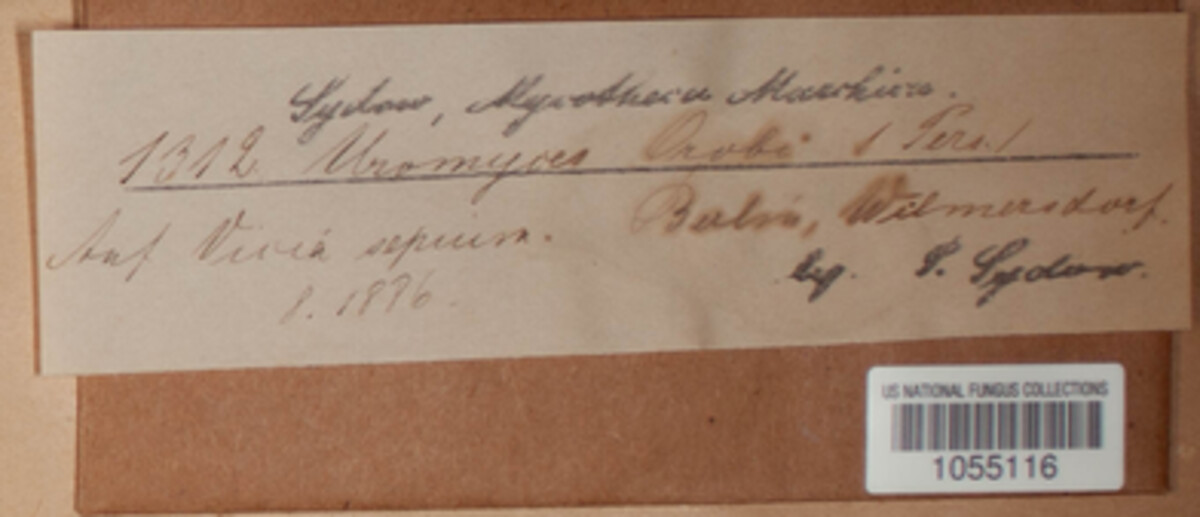 Sydow, Mycotheca Marchica.
1312 Uromyces Orobi (Pers.)
Auf Vicia sepium. Berlin, Wilmersdorf.
8. 1886. leg. P. Sydow.
US NATIONAL FUNGUS COLLECTIONS
1055116